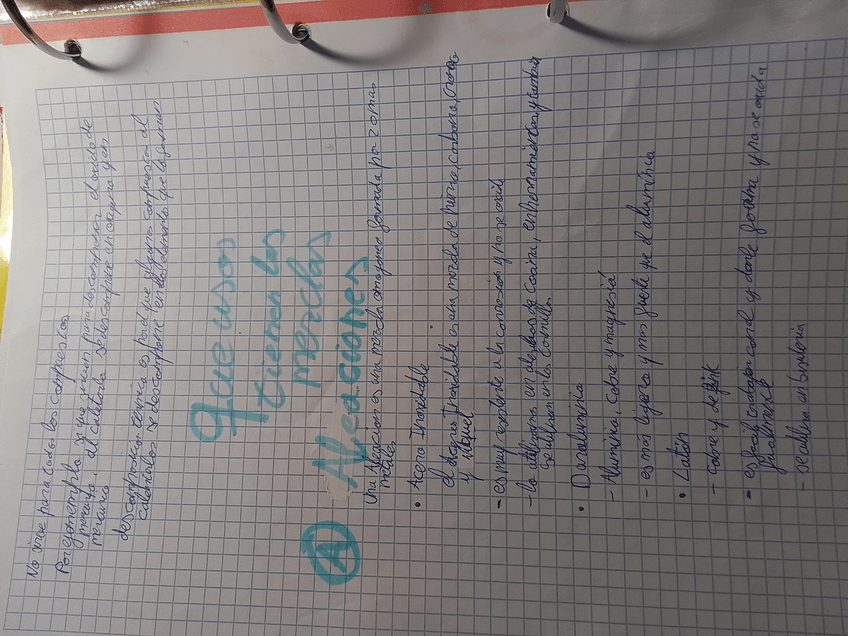 No sirve para todos los compuestos
Por ejemplo si que sirven para descomponer el oxido de
mercurio, al calentarlo se descompone en oxigeno y en
mercurio
descomposicion termica es por que algunos compuestos al
calentarlos se descomponen en los elementos que lo forman
que usos
tienen las
mezclas
A Aleaciones
Una Aleacion es una mezcla omogenea formada por 2 o mas
metales
• Acero Inoxidable
el acero Inoxidable es una mezcla de hierro, carbono, cromo
y niquel
- es muy resistente a la corrosion y no se oxida
- lo utilizan en utensilios de cocina,
se utilizan en los
• Duraluminio
- Aluminio, cobre y magnesio
- es mas ligero y mas fuerte que el aluminio
• Laton
- cobre y de zinc
- es facil trabajar con el y darle forma y no se oxida
facilmente
- se utiliza en bisuteria